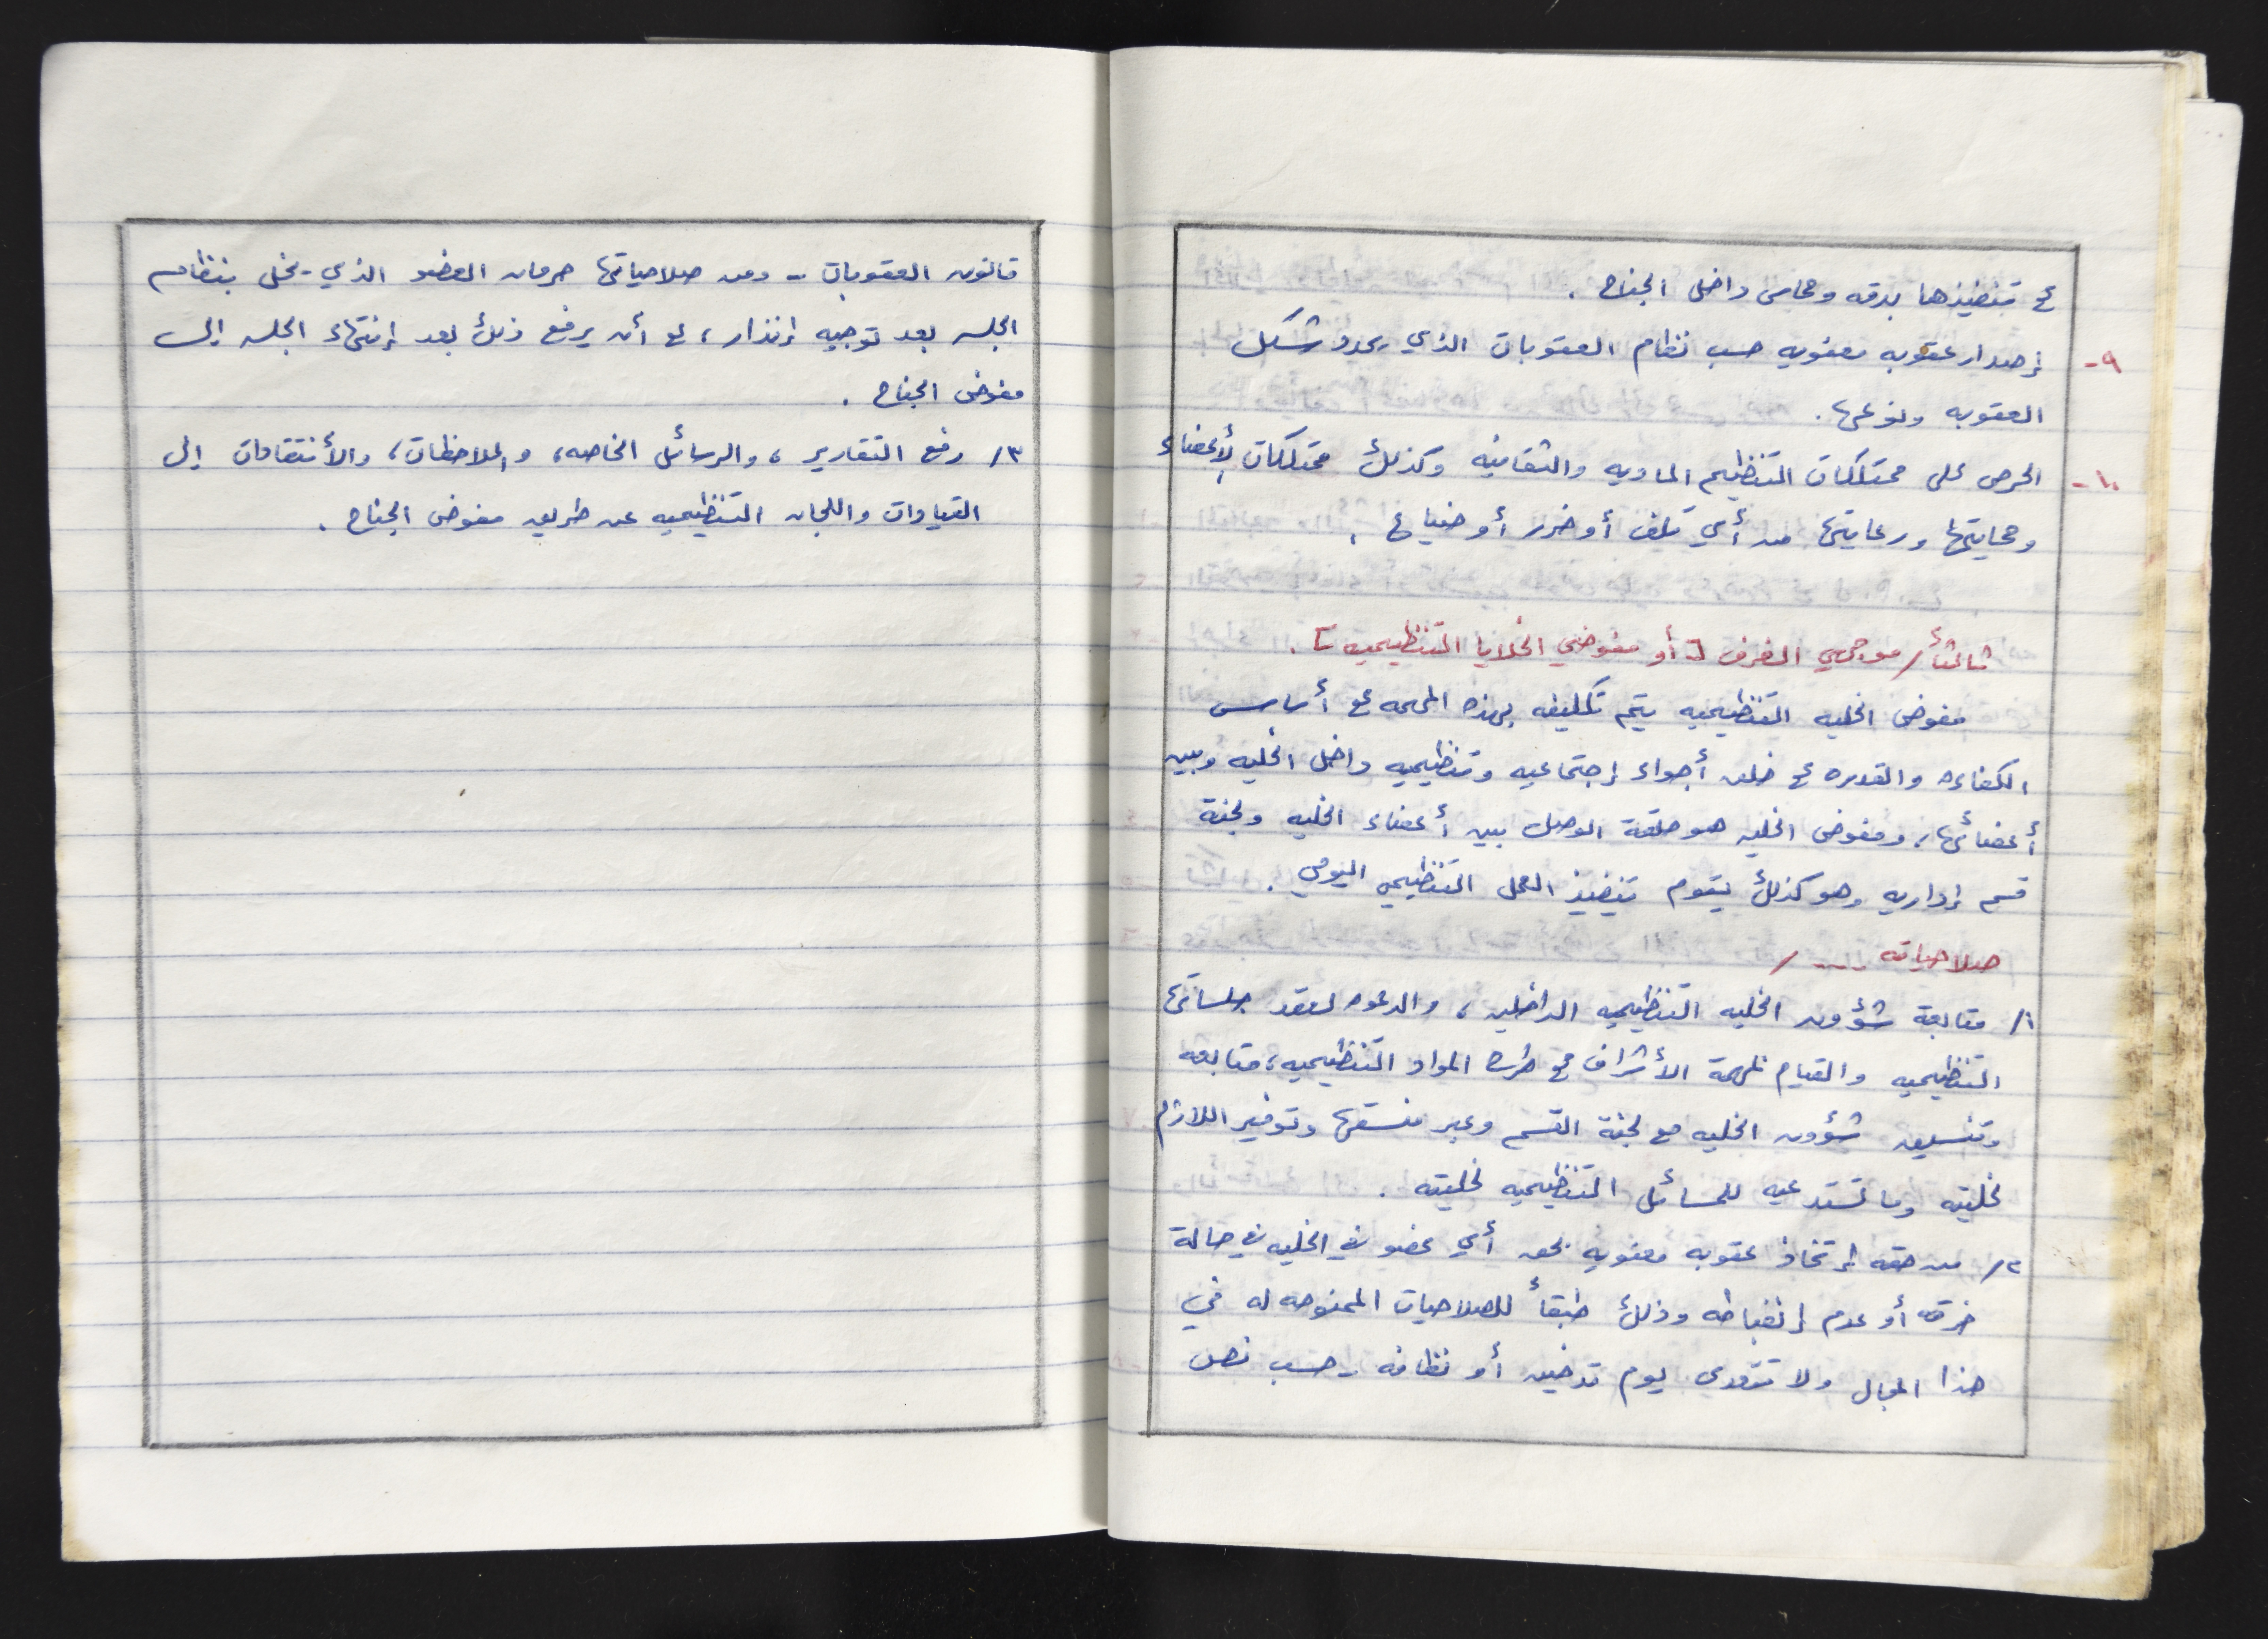 ع تنفيذها بدقه وحماس داخل الجناح .
٩- إصدار عقوبه معنويه حسب نظام العقوبات الذي يحدد شكل
العقوبه ونوعها .
١٠- الحرص على ممتلكات التنظيم الماديه والثقافيه وكذلك ممتلكات الأعضاء
وحمايتها ورعايتها من أي تلف أو ضرر أو ضياع .
ثالثاً / موجهي الغرف [ أو مفوضي الخلايا التنظيميه ] .
مفوض الخليه التنظيميه يتم تكليفه بهذه المهمه ع أساس
الكفاءه والقدره ع خلق أجواء إجتماعيه وتنظيميه داخل الخليه وبين
أعضائها ، ومفوض الخليه هو حلقة الوصل بين أعضاء الخليه ولجنة
قسم إداريه وهو كذلك يقوم تنفيذ العمل التنظيمي اليومي .
صلاحياته ... /
١/ متابعة شؤون الخليه التنظيميه الداخليه ، والدعوه لعقد جلساتها
التنظيميه والقيام بمهمة الأشراف ع طرح المواد التنظيميه ، متابعه
وتنسيق شؤون الخليه مع لجنة القسم وعبر منسقها وتوفير اللازم
لخليته وما تستدعيه للمسائل التنظيميه لخليته .
٢/ من حقه إتخاذ عقوبه معنويه بحق أي عضو في الخليه في حالة
خرقه أو عدم إنضباطه وذلك طبقاً للصلاحيات الممنوحه له في
هذا المجال ولا تتعدى يوم تدخين أو نظافه - حسب نص
قانون العقوبات - ومن صلاحياتها حرمان العضو الذي يخل بنظام
الجلسه بعد توجيه إنذار ، ع أن يرفع ذلك بعد إنتهاء الجلسه إلى
مفوض الجناح .
٣/ رفع التقارير ، والرسائل الخاصه ، والملاحظات ، والأنتقادات إلى
القيادات واللجان التنظيميه عن طريق مفوض الجناح .